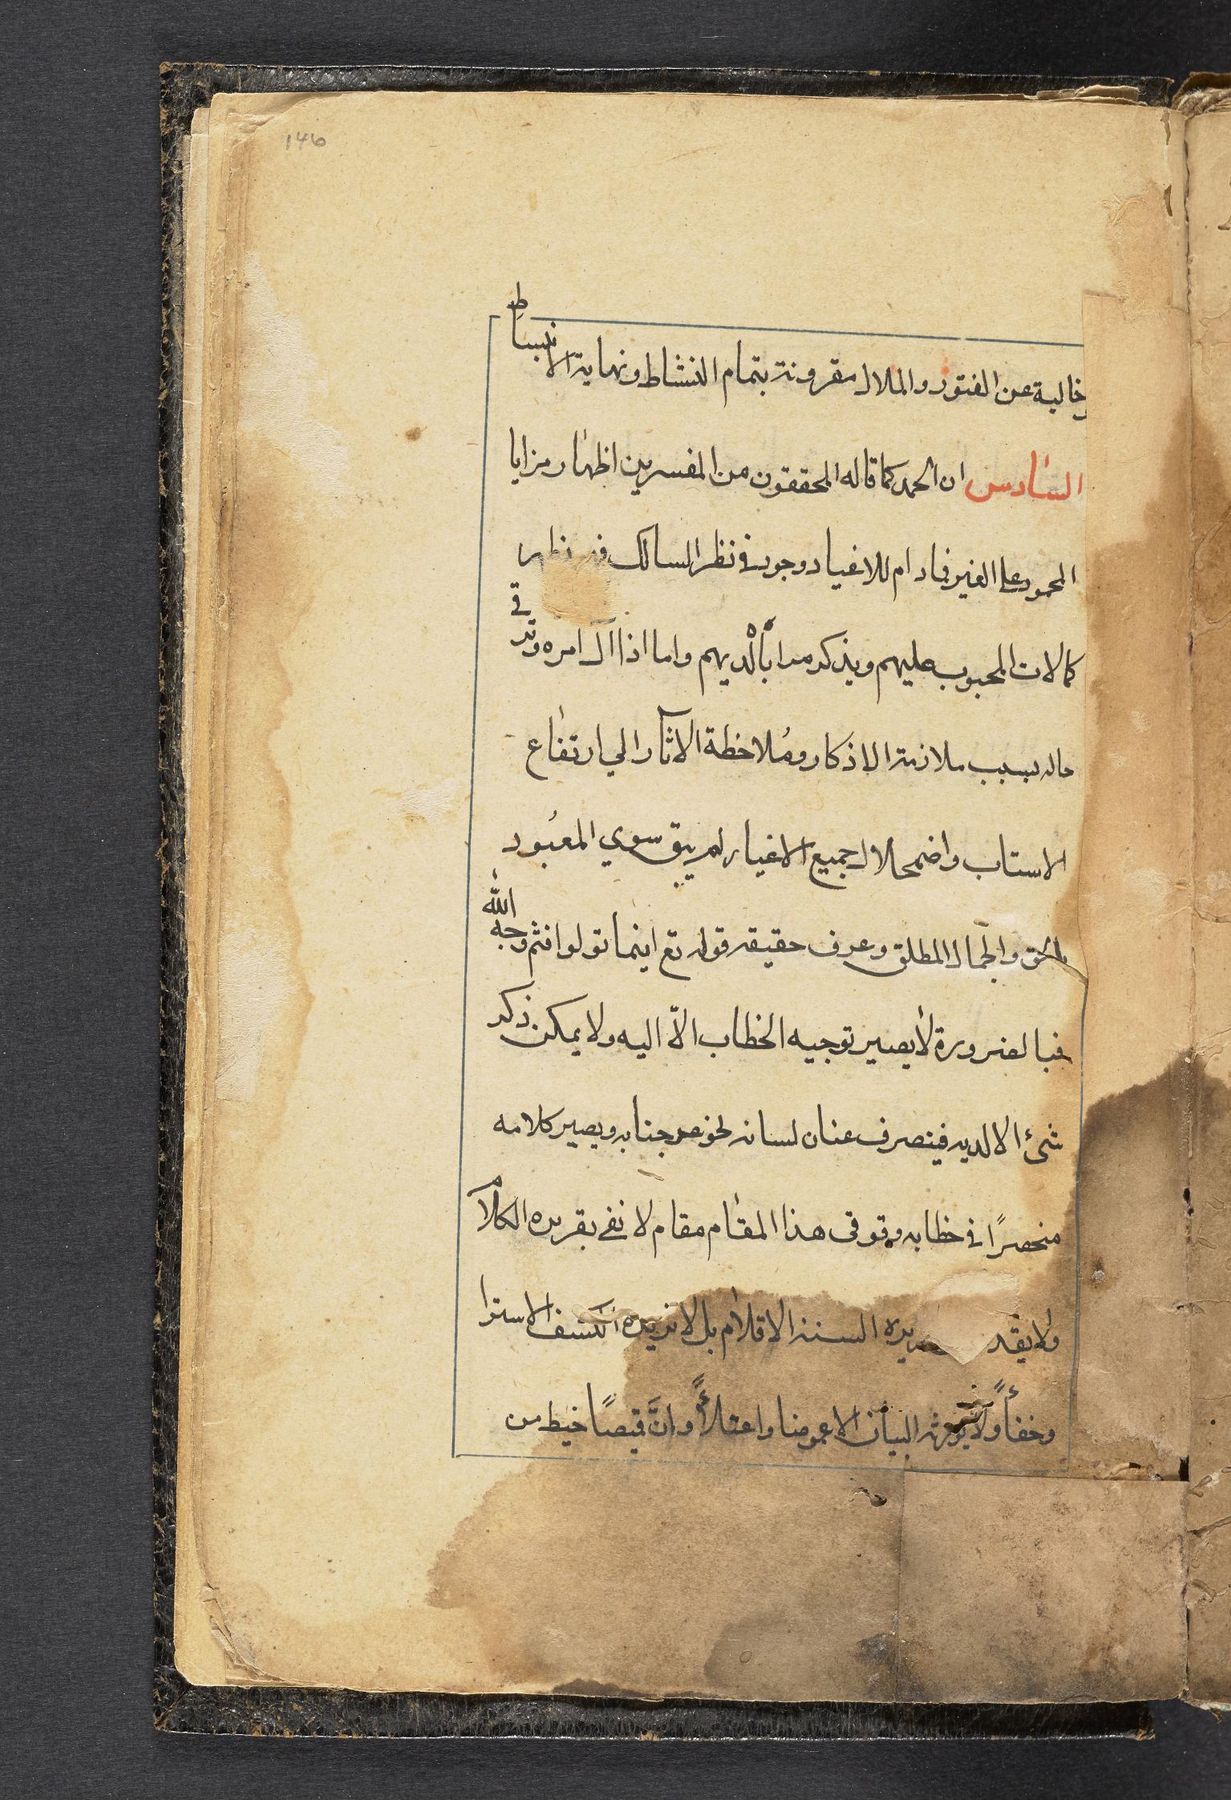 ١٤٥
وخالية عن الفتور والملال مقرونة بتمام النشاط ونهاية الانبساط
السادس ان الحمد كما قاله المحققون من المفسرين اظهار مزايا
المحمود على الغير فمادام للاغيار وجود في نظر السالك فهو يظهر
كمالات المحبوب عليهم ويذكر مزاياه لديهم واما اذا آل امره وترقى
حاله بسبب ملازمة الاذكار وملاحظة الاثار الي ارتفاع
الاستار واضمحلال جميع الاغيار لم يبق سوي المعبود
بالحق والجمال المطلق وعرف حقيقة قوله تع اينما تولوا فثم وجه الله
فبالضرورة لا يصير توجيه الخطاب الّا اليه ولا يمكن ذكر
شئ الا لديه فينصرف عنان لسانه نحو عز جنابه ويصير كلامه
منحصرًا في خطابه وفوق هذا المقام مقام لا تفي بتقريره الكلام
ولا يقدر السنة الاقلام بل لا يزيده الكشف الا سترا
وخفأً ولا يورثه البيان الا غموضا واعتلأً وانّ قميصًا خيط من